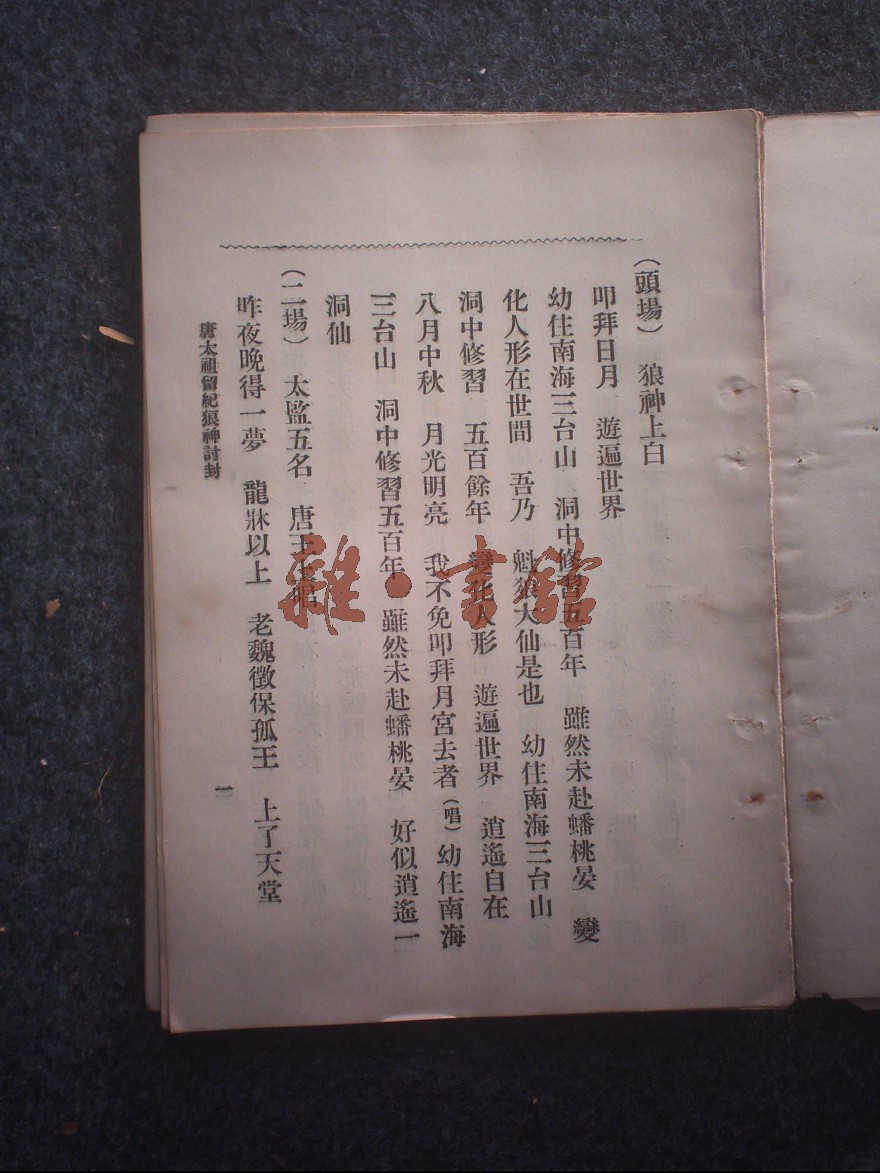 （頭場）　狼神上白
叩拜日月　遊遍世界
幼住南海三台山　洞中修習五百年　雖然未赴蟠桃宴　變
化人形在世間　吾乃　魁狼大仙是也　幼住南海三台山
洞中修習　五百餘年　變化人形　遊遍世界　逍遙自在
八月中秋　月光明亮　我不免叩拜月宮去者（唱）幼住南海
三台山　洞中修習五百年　雖然未赴蟠桃宴　好似逍遙一
洞仙
（二場）　太監五名　唐王上唱
昨夜晚得一夢　龍牀以上　老魏徵保孤王　上了天堂
唐太祖留紀狼神討封
一
雜·書館